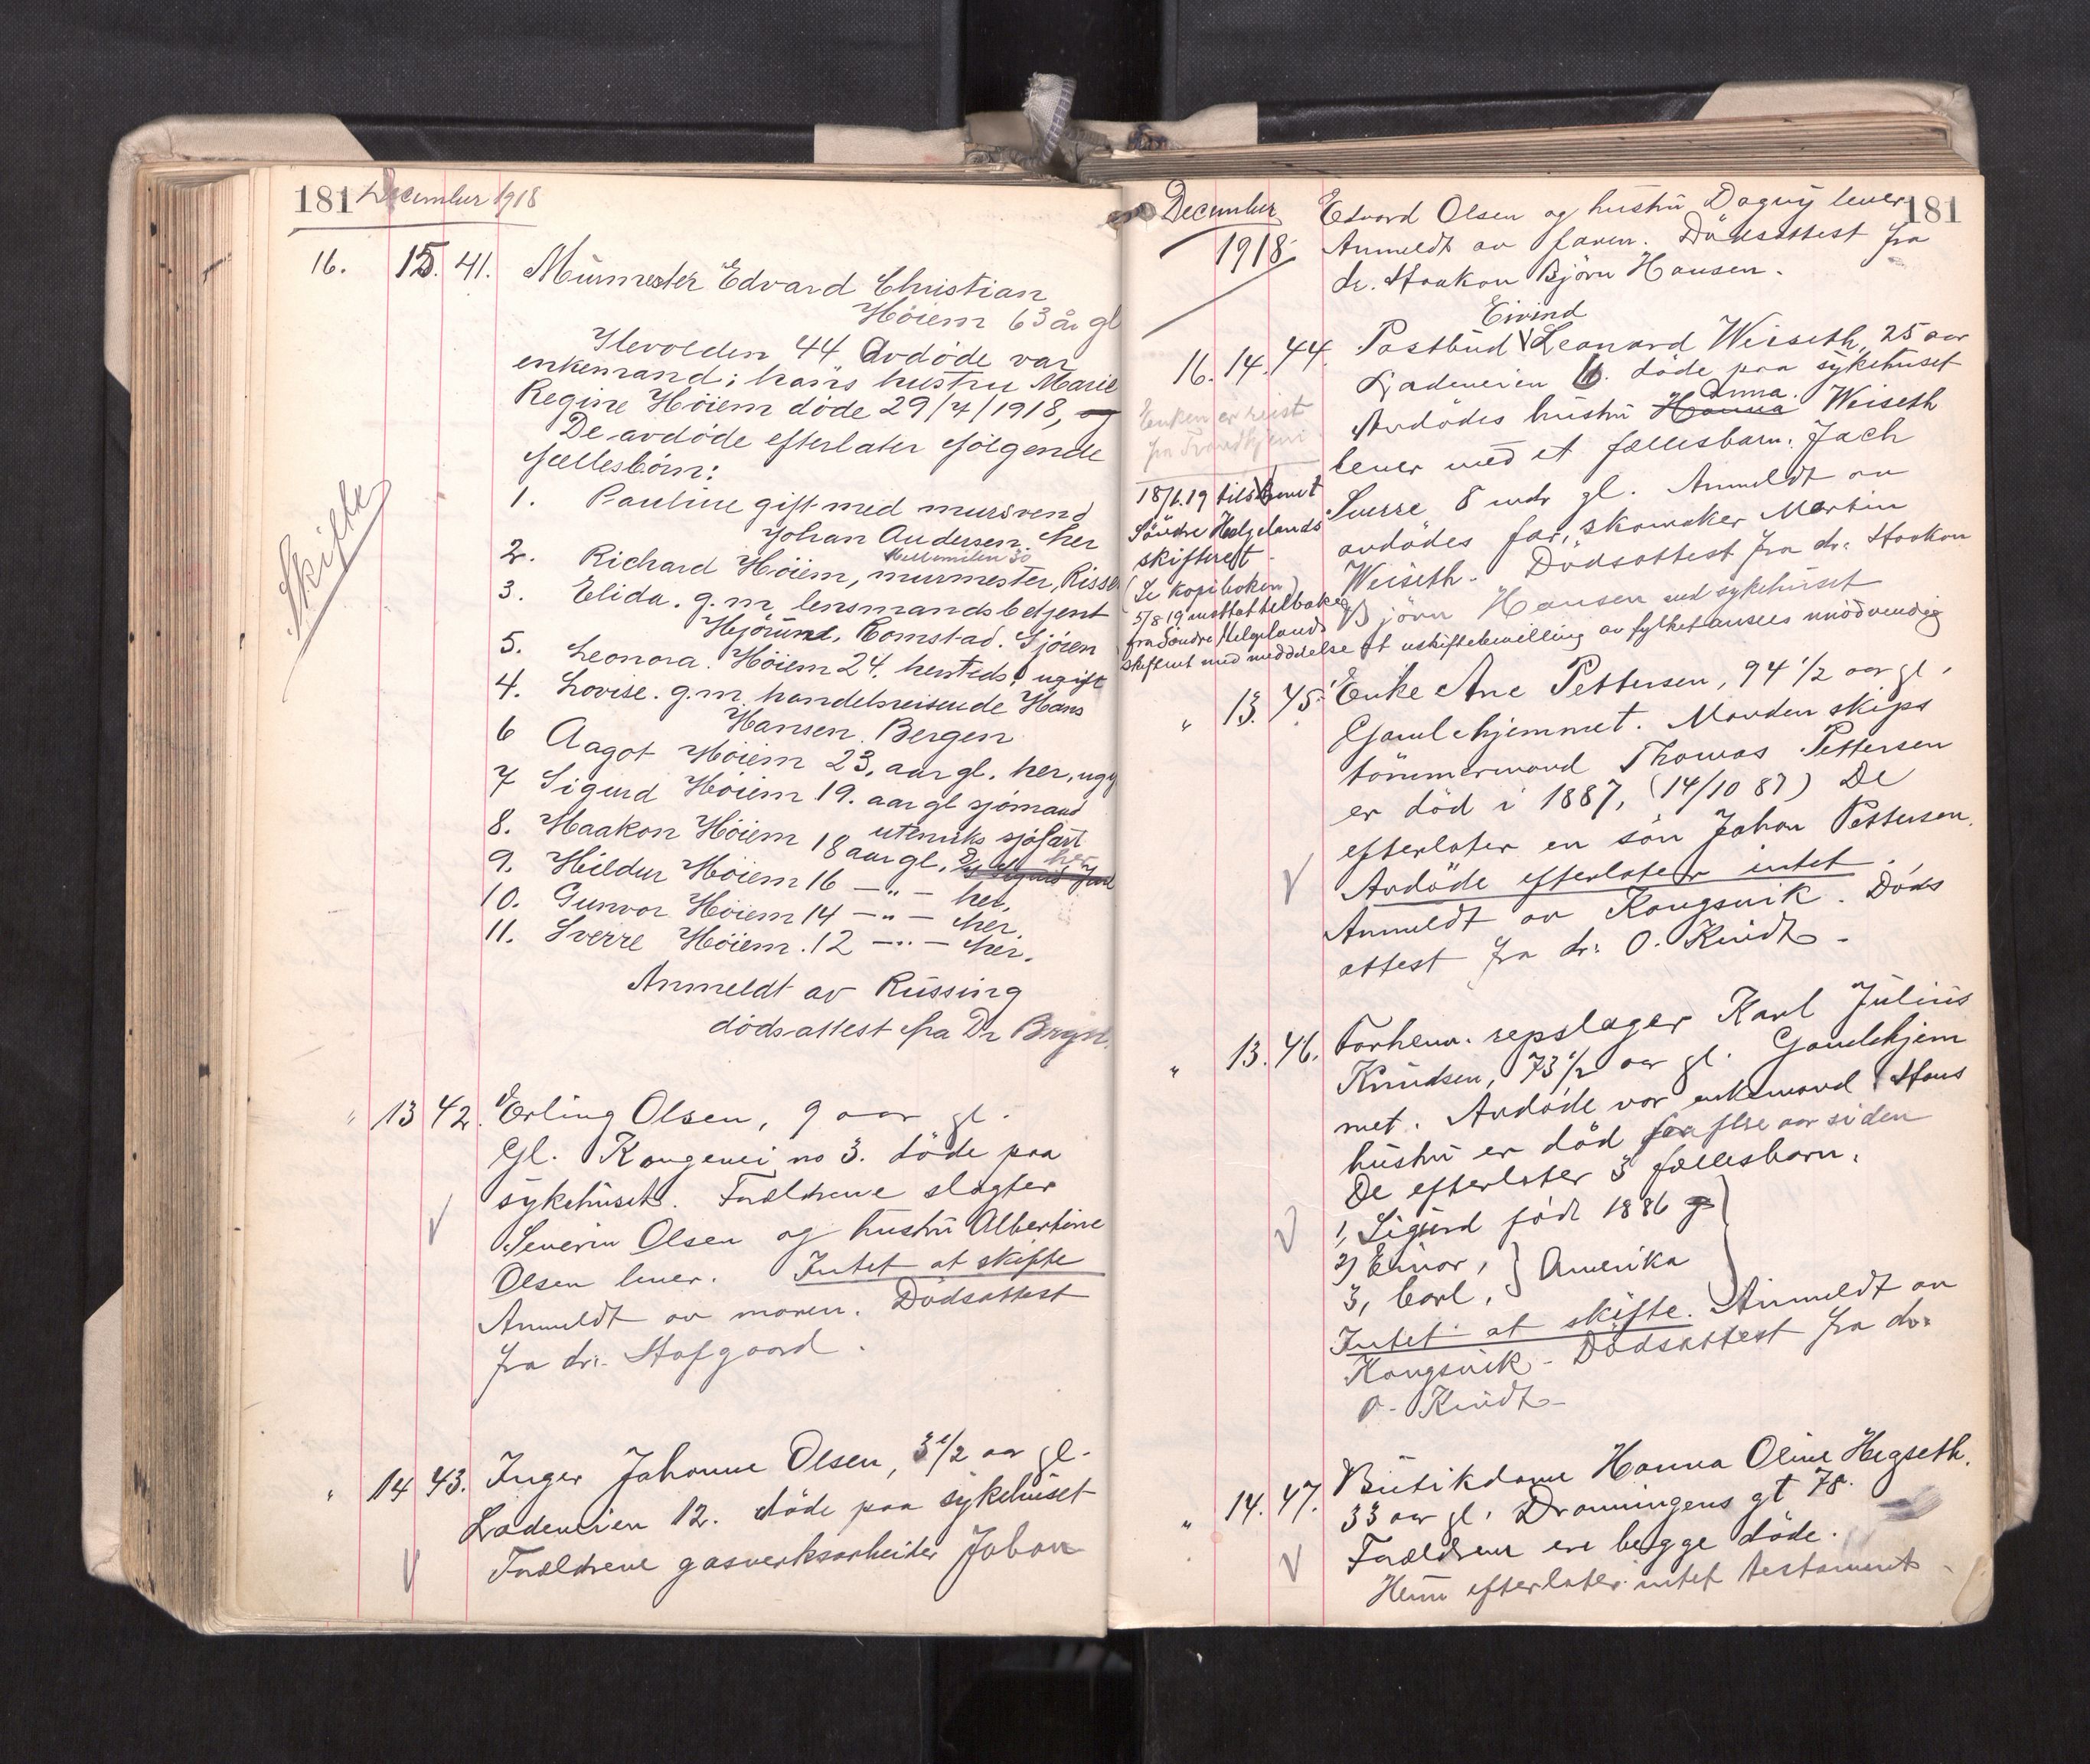 181 December 1918
16. 15. 41. Murmester Edvard Christian
Höiem 63 år gl
Ilevolden 44 Avdöde var
enkemand; hans hustru Marie
Regine Höiem döde 29/4/1918, og
De avdöde efterlater följgende
fællesbörn:
Skifte
1. Pauline gift med mursvend
Johan Andersen. her
Mellemilen 30
2. Richard Höiem, murmester, Rissen
3. Elida. g. m. lensmandsbetjent
Hjörund, Comstad. Gjören
5. Leonora. Höiem 24. hersteds. ugift
4. Lovise. g. m. handelsreisende Hans
Hansen. Bergen
6 Aagot Höiem 23. aar gl. her, ugy
7 Sigurd Höiem 19. aar gl sjömand
utenriks sjöfart
8. Haakon Höiem 18 aar gl, her
9. Hildur Höiem 16 — " — her,
10. Gunvor Höiem 14 — " — her.
11. Sverre Höiem. 12 — " — her.
Anmeldt av Russing
dödsattest fra Dr
" 13 42. Erling Olsen, 9 aar gl.
Gl. Kongevei no 3. döde paa
sykehuset. Forældrene slagter
Severin Olsen og hustru Albertine
Olsen lever. Intet at skifte
Anmeldt av moren. Dödsattest
fra dr. Hofgaard.
" 14 43. Inger Johanne Olsen, 3 1/2 aar gl.
Lademoien 12. döde paa sykehuset
Forældrene gasverksarbeider Johan
December Edvard Olsen og hustru Dagny lever 181
1918 Anmeldt av faren. Dödsattest fra
dr. Haakon Björn Hansen.
Eivind
16. 14. 44. Postbud Leonard Weiseth, 25 aar
Ladeveien 6. döde paa sykehuset
Anna.
Avdödes hustru Hanna Weiseth
lever med et fællesbarn. Jach
Sverre 8 mdr gl. Anmeldt av
avdödes far, skomaker Martin
Weiseth. Dödsattest fra dr. Haakon
Björn Hansen ved sykehuset
Enken er reist
fra Trondhjem
18/1.19 tilskrevet
Söndre Helgelands
skifteret
(Se kopiboken)
5/8 19 mottat tilbake
fra Söndre Helgelands
skifteret med meddelelse at uskiftebevilling av fylket ansees unödvendig
" 13. 45. Enke Ane Pettersen, 94 1/2 aar gl.
Gamlehjemmet. Manden skips
tömmermand Thomas Pettersen
er död i 1887, (14/10 87) De
efterlater en sön Johan Pettersen.
Avdöde efterlater intet.
Anmeldt av Kongsvik. Döds
attest fra dr. O. Kindt -
" 13. 46. Forhenv. repslager Karl Julius
Knudsen, 73 1/2 aar gl. Gamlehjem
met. Avdöde var enkemand. Hans
hustru er död for flre aar siden
De efterlater 3 fællesbarn.
1, Sigurd född 1886
2) Einar, } Amerika
3, Carl,
Intet at skifte. Anmeldt av
Kongsvik - Dödsattest fra dr.
O. Kindt -
" 14. 47. Butikdame Hanna Oline Hegseth.
33 aar gl. Dronningens gt 78.
Forældrene ere begge döde.
Hun efterlater intet testament